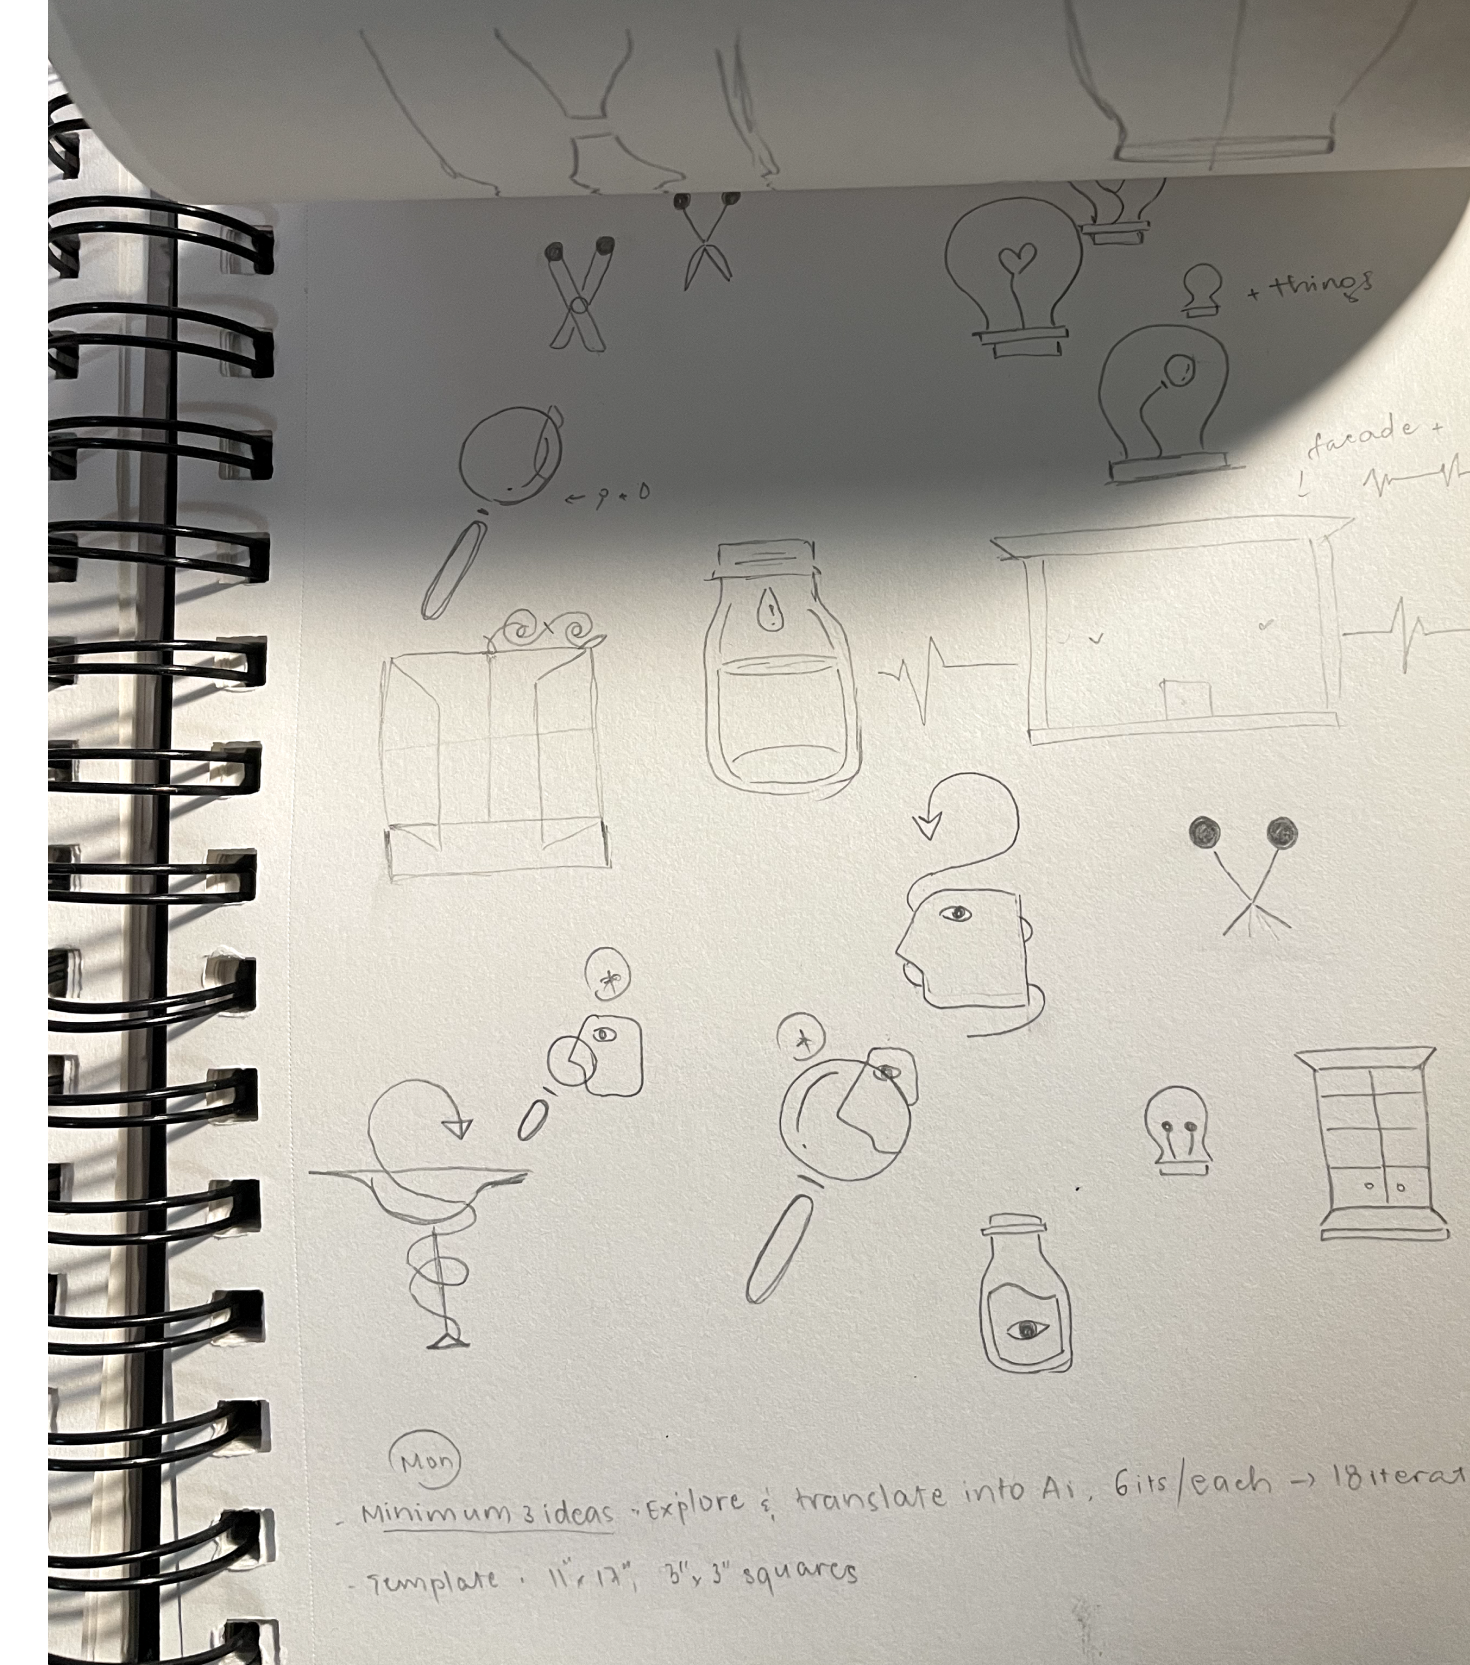 + things
facade +
Mon
- Minimum 3 ideas - Explore & translate into Ai, 6its/each → 18 iterat
- Template · 11"x17", 3"x3" squares